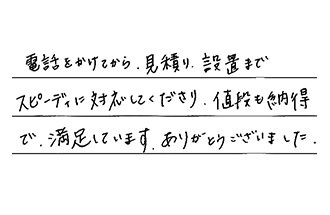 電話をかけてから、見積り、設置まで
スピーディに対応してくださり、値段も納得
で、満足しています。ありがとうございました。